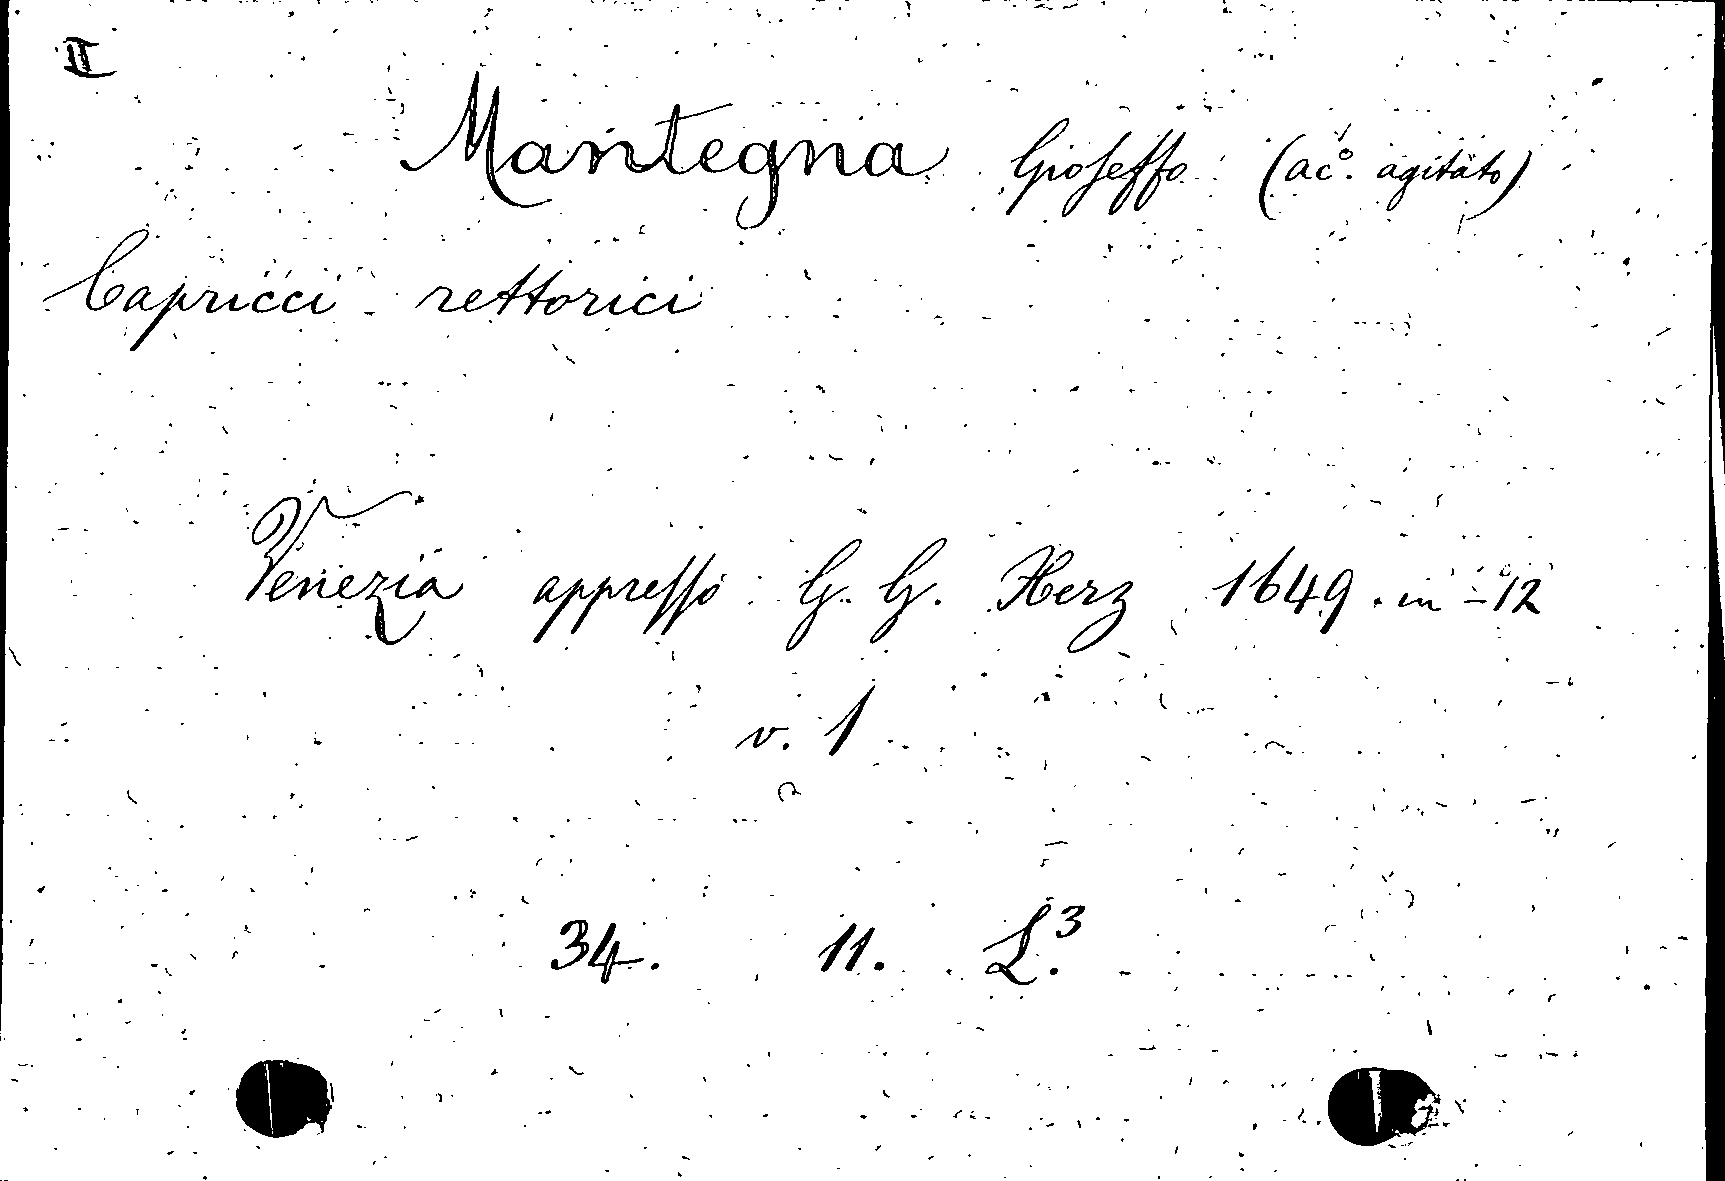 II
Mantegna Gioseffo (ac.º agitato)
Capricci rettorici
Venezia appresso G. G. Herz 1649. in-12
v. 1
34. 11. L.³